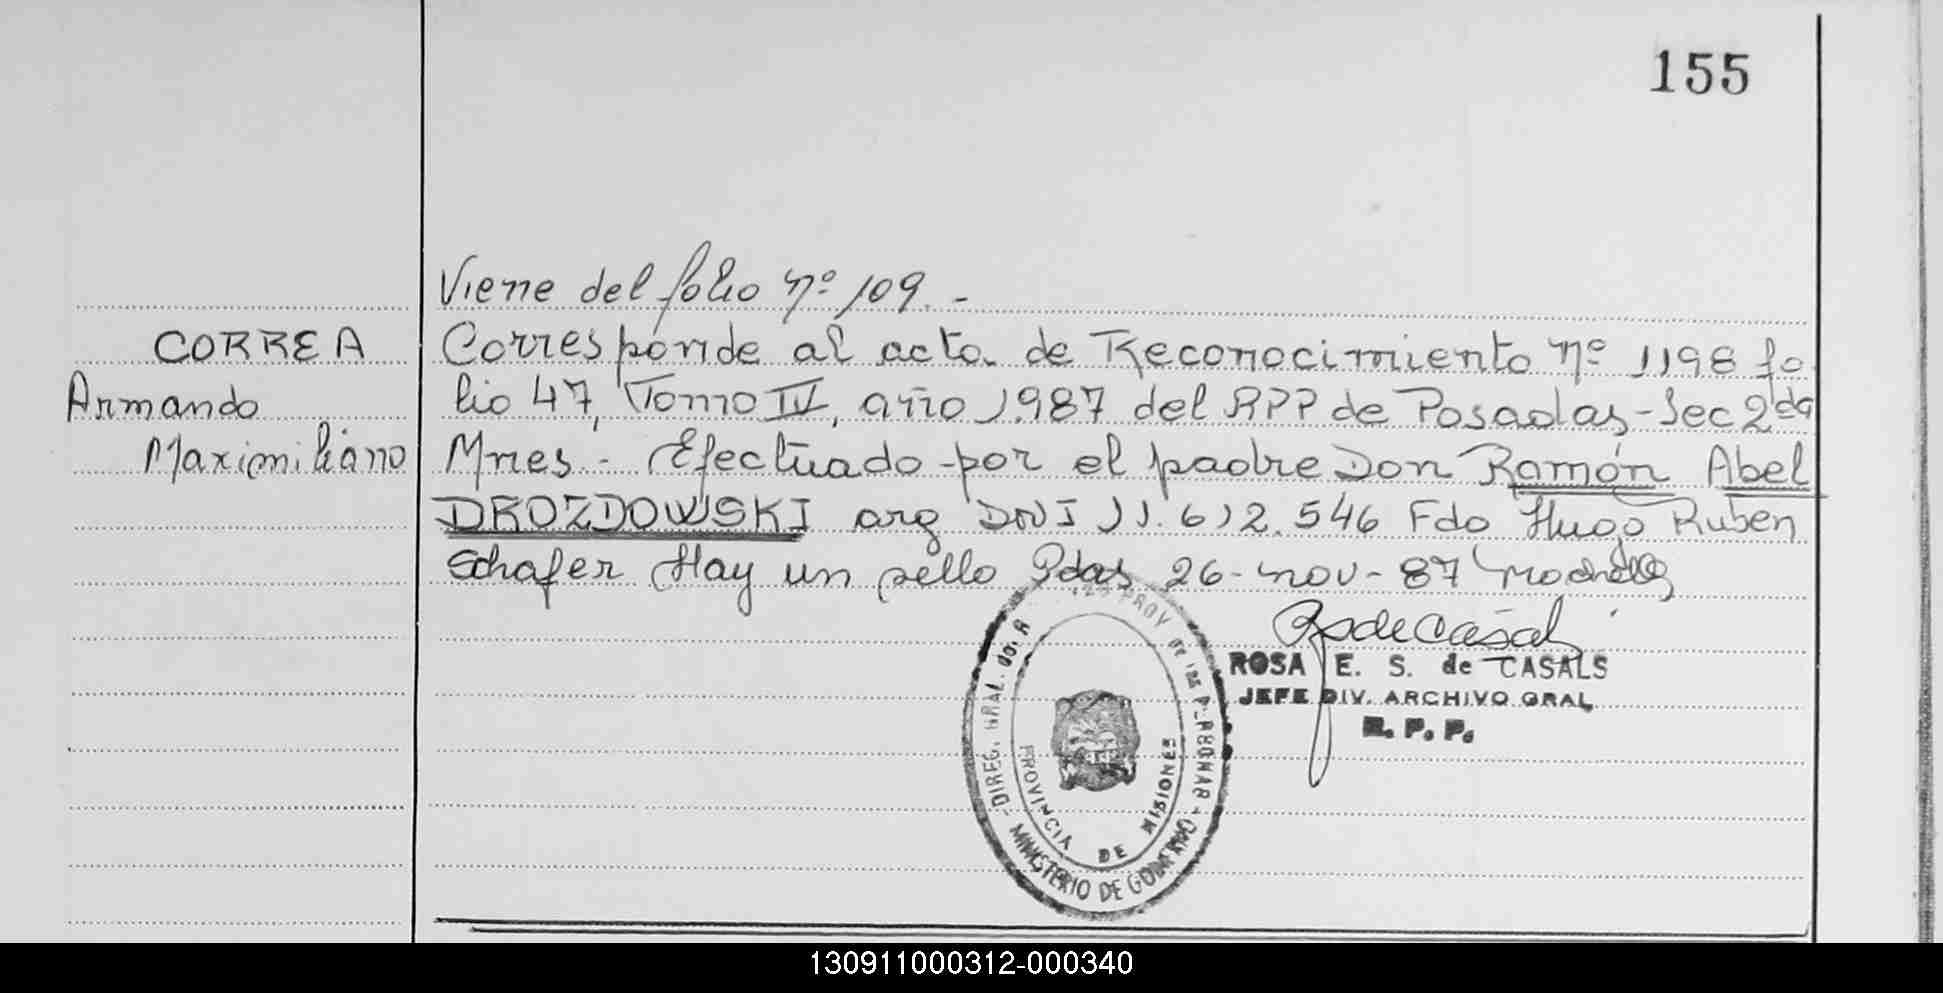 155
Viene del folio nº 109.-
CORREA
Armando
Maximiliano
Corresponde al acta de Reconocimiento nº 1198 fo
lio 47, Tomo IV, año 1987 del RPP de Posadas-Sec 2da
Mnes - Efectuado por el padre Don Ramón Abel
DROZDOWSKI arg DNI 11.612.546 Fdo Hugo Ruben
Schafer Hay un sello Pdas 26-nov-87
ROSA E. S. de CASALS
JEFE DIV. ARCHIVO GRAL
R. P. P.
DIREG. GRAL. PROV DE LAS PERSONAS
MINISTERIO DE GOBIERNO
PROVINCIA DE MISIONES
130911000312-000340